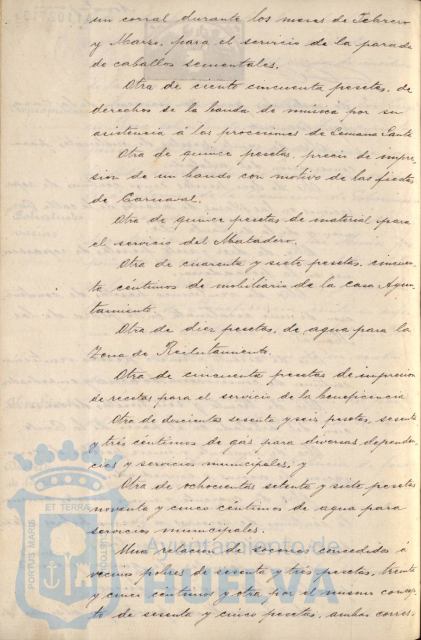 un corral durante los meses de Febrero
y Marzo, para el servicio de la parada
de caballos sementales.
Otra de ciento cincuenta pesetas, de
derechos de la banda de música por su
asistencia á las procesiones de Semana Santa
Otra de quince pesetas, precio de impre-
sion de un bando con motivo de las fiestas
de Carnaval.
Otra de quince pesetas de material para
el servicio del Matadero.
Otra de cuarenta y siete pesetas, cincuen-
ta centimos de mobiliario de la casa Ayun-
tamiento.
Otra de diez pesetas, de agua para la
Zona de Reclutamiento.
Otra de cincuenta pesetas de impresion
de recetas para el servicio de la beneficencia
Otra de doscientas sesenta y seis pesetas, sesenta
y tres céntimos de gas para diversas dependen-
cias y servicios municipales, y
Otra de ochocientas setenta y siete pesetas
noventa y cinco céntimos de agua para
servicios municipales.
Una relacion de socorros concedidos á
vecinos pobres de sesenta y tres pesetas, treinta
y cinco centimos y otra por el mismo concep-
to de sesenta y cinco pesetas, ambas corres-
PORTUS MARIS
ET TERRAE
CUSTODIA
Ayuntamiento de
HUELVA